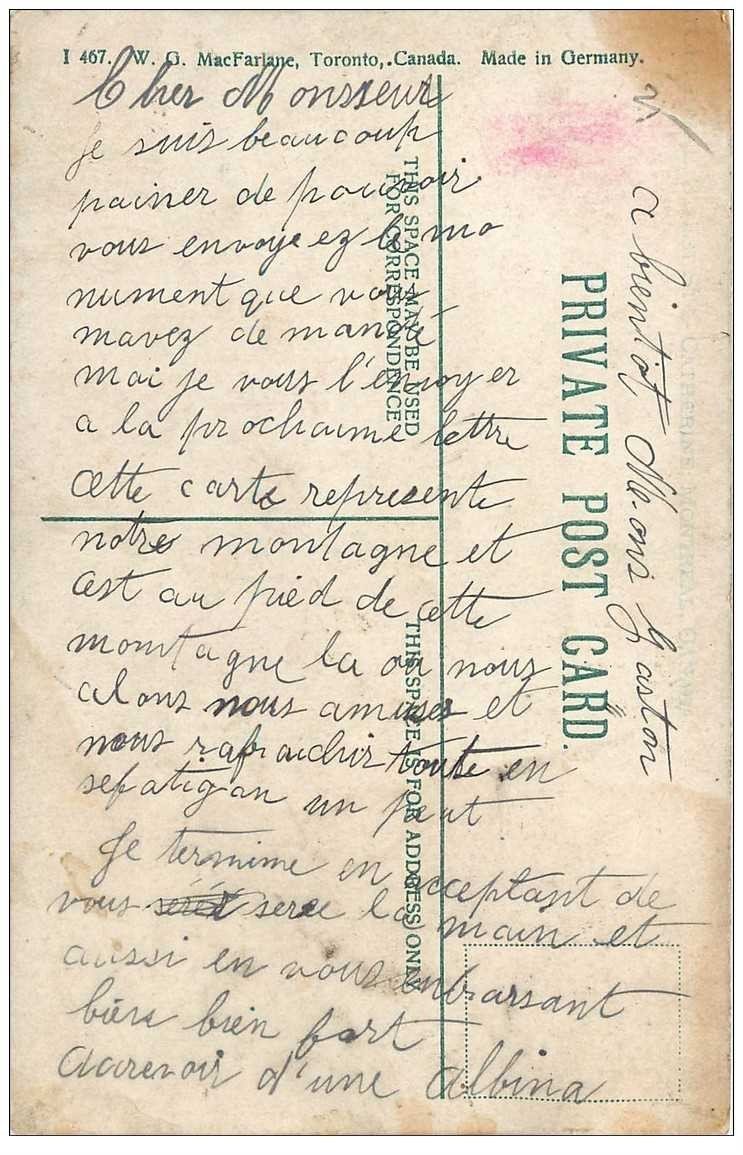 I 467. W. G. MacFarlane, Toronto, Canada. Made in Germany.
Cher Monsieur
Je suis beaucoup
painer de pouvoir
vous envoyez le mo
nument que vous
mavez de mandé
mai je vous l'envoyer
a la prochaime lettre
cette carte represente
notre montagne et
cest au pied de cette
montagne la ou nous
alons nous amuser et
nous rafraichir toute en
sefatigan un peut
Je termime en acceptant de
vous serce la main et
aussi en vous enbrassant
biens bien fort
Aurevoir d'une Albina
a bientot, Me-ons Gaston
THIS SPACE MAY BE USED
FOR CORRESPONDENCE
THIS SPACE IS FOR ADDRESS ONLY
PRIVATE POST CARD.